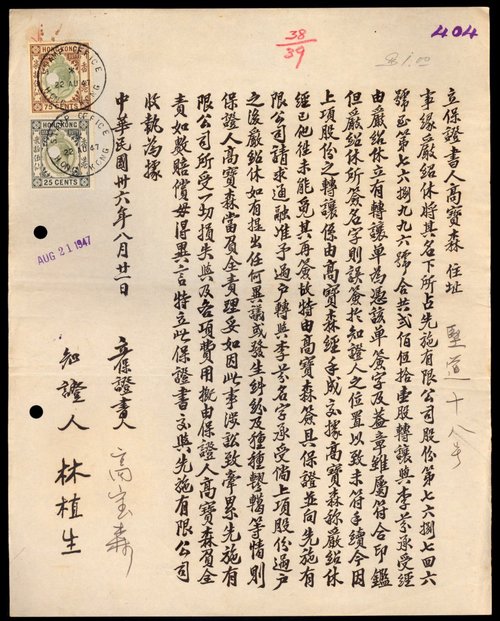 404
38
39
$1.00
HONG KONG
75 CENTS
STAMP OFFICE
22 AU 47
HONG KONG
25 CENTS
AUG 21 1947
立保證書人高寶森 住址 聖道十八号
事緣嚴紹休將其名下所占先施有限公司股份第七六捌七四六
號至第七六捌九九六號合共貳佰伍拾壹股轉讓與李芬承受經
由嚴紹休立有轉讓单為憑該单簽字及蓋章雖屬符合印鑑
但嚴紹休所簽名字則誤簽於知證人之位置以致未符手續今因
上項股份之轉讓係由高寶森經手成交據高寶森称嚴紹休
經已他往未能覓其再簽故特由高寶森簽具保證並向先施有
限公司請求通融准予過户轉與李芬名字承受倘上項股份過户
之後嚴紹休如有提出任何異議或發生糾紛及種種轇轕等情則
保證人高寶森當負全責理妥如因此事涉訟致牽累先施有
限公司所受一切損失與及各項費用概由保證人高寶森負全
責如數賠償毋得異言特立此保證書交與先施有限公司
收執為據
中華民國卅六年八月廿一日
立保證書人 高宝森
知證人 林植生